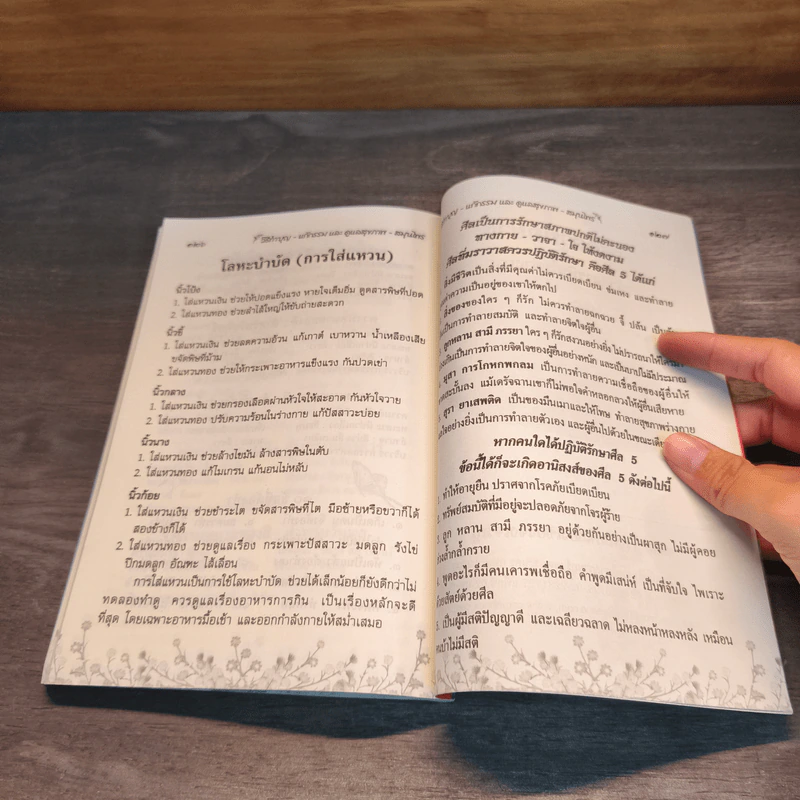 ๑๒๖
วิธีทำบุญ - แก้กรรม และ ดูแลสุขภาพ - สมุนไพร
โลหะบำบัด (การใส่แหวน)
นิ้วโป้ง
1. ใส่แหวนเงิน ช่วยให้ปอดแข็งแรง หายใจเต็มอิ่ม ดูดสารพิษที่ปอด
2. ใส่แหวนทอง ช่วยลำไส้ใหญ่ให้ขับถ่ายสะดวก
นิ้วชี้
1. ใส่แหวนเงิน ช่วยลดความอ้วน แก้เกาต์ เบาหวาน น้ำเหลืองเสีย
ขจัดพิษที่ม้าม
2. ใส่แหวนทอง ช่วยให้กระเพาะอาหารแข็งแรง กันปวดเข่า
นิ้วกลาง
1. ใส่แหวนเงิน ช่วยกรองเลือดผ่านหัวใจให้สะอาด กันหัวใจวาย
2. ใส่แหวนทอง ปรับความร้อนในร่างกาย แก้ปัสสาวะบ่อย
นิ้วนาง
1. ใส่แหวนเงิน ช่วยล้างไขมัน ล้างสารพิษในตับ
2. ใส่แหวนทอง แก้ไมเกรน แก้นอนไม่หลับ
นิ้วก้อย
1. ใส่แหวนเงิน ช่วยชำระไต ขจัดสารพิษที่ไต มือซ้ายหรือขวาก็ได้
สองข้างก็ได้
2. ใส่แหวนทอง ช่วยดูแลเรื่อง กระเพาะปัสสาวะ มดลูก รังไข่
ปีกมดลูก อัณฑะ ไส้เลื่อน
การใส่แหวนเป็นการใช้โลหะบำบัด ช่วยได้เล็กน้อยก็ยังดีกว่าไม่
ทดลองทำดู ควรดูแลเรื่องอาหารการกิน เป็นเรื่องหลักจะดี
ที่สุด โดยเฉพาะอาหารมื้อเช้า และออกกำลังกายให้สม่ำเสมอ
แก้กรรม และ ดูแลสุขภาพ - สมุนไพร
๑๒๗
ศีลเป็นการรักษาสภาพปกติไม่คะนอง
ทางกาย - วาจา - ใจ ให้งดงาม
ศีลที่ฆราวาสควรปฏิบัติรักษา คือศีล 5 ได้แก่
สิ่งมีชีวิตเป็นสิ่งที่มีคุณค่าไม่ควรเบียดเบียน ข่มเหง และทำลาย
ความเป็นอยู่ของเขาให้ตกไป
สิ่งของของใคร ๆ ก็รัก ไม่ควรทำลายฉกฉวย จี้ ปล้น
เป็นการทำลายสมบัติ และทำลายจิตใจผู้อื่น
ลูกหลาน สามี ภรรยา ใคร ๆ ก็รักสงวนอย่างยิ่ง ไม่ปรารถนาให้
เป็นการทำลายจิตใจของผู้อื่นอย่างหนัก และเป็นบาปไม่มีประมาณ
มุสา การโกหกพกลม เป็นการทำลายความเชื่อถือของผู้อื่นให้
ลง แม้เดรัจฉานเขาก็ไม่พอใจคำหลอกลวงให้ผู้อื่นเสียหาย
สุรา ยาเสพติด เป็นของมึนเมาและให้โทษ ทำลายสุขภาพร่างกาย
อย่างยิ่งเป็นการทำลายตัวเอง และผู้อื่นไปด้วยในขณะ
หากคนใดได้ปฏิบัติรักษาศีล 5
ข้อนี้ได้ก็จะเกิดอานิสงส์ของศีล 5 ดังต่อไปนี้
ทำให้อายุยืน ปราศจากโรคภัยเบียดเบียน
ทรัพย์สมบัติที่มีอยู่จะปลอดภัยจากโจรผู้ร้าย
ลูก หลาน สามี ภรรยา อยู่ด้วยกันอย่างเป็นผาสุก ไม่มีผู้คอย
ล้ำกล้ำกราย
พูดอะไรก็มีคนเคารพเชื่อถือ คำพูดมีเสน่ห์ เป็นที่จับใจ ไพเราะ
ด้วยสัตย์ด้วยศีล
5. เป็นผู้มีสติปัญญาดี และเฉลียวฉลาด ไม่หลงหน้าหลงหลัง เหมือน
คนบ้าไม่มีสติ